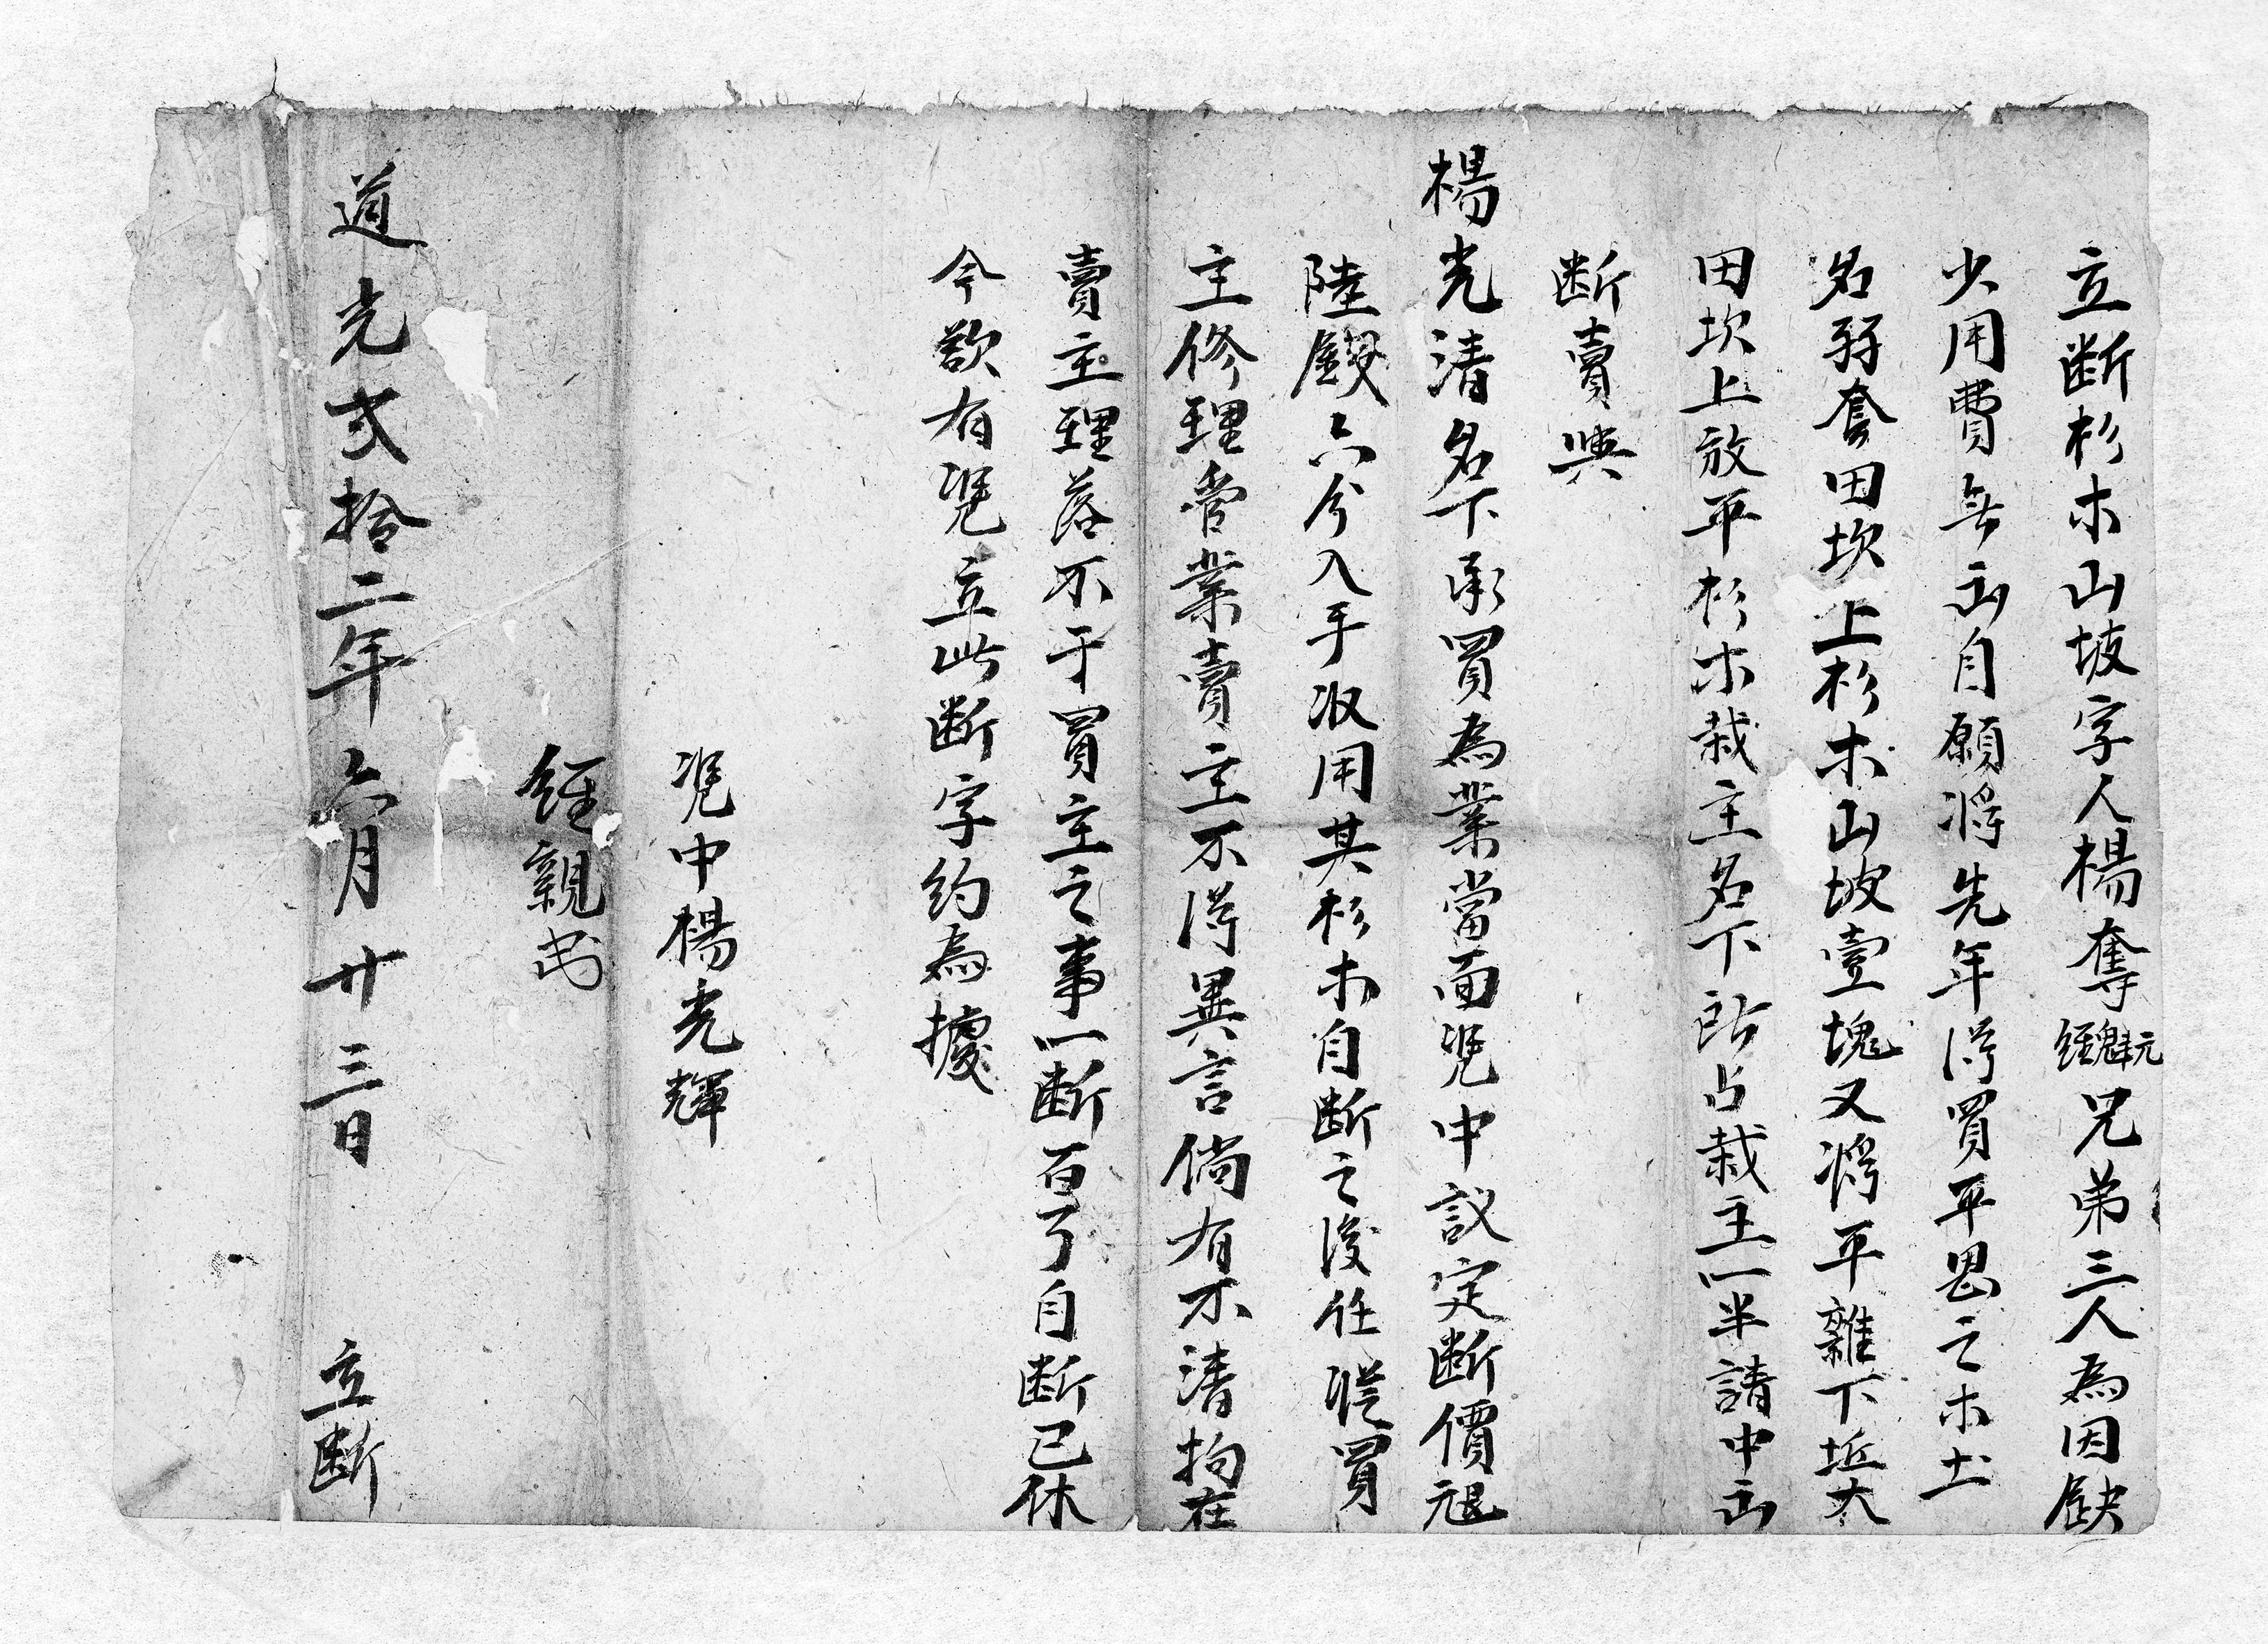 立断杉木山坡字人楊奪元魁經兄弟三人為因缺
少用費無出自願将先年得買平恩之木土
名弱套田坎上杉木山坡壹塊又将平雞下坵大
田坎上放平杉木栽主名下所占栽主一半請中出
断賣與
楊光清名下承買為業當面凴中議定断價
陸錢六分入手收用其杉木自断之後任從買
主修理管業賣主不得異言倘有不清拘在
賣主理落不干買主之事一断百了自断已休
今欲有凴立此断字約為據
凴中楊光輝
經親書
道光弍拾二年六月廿三日 立断